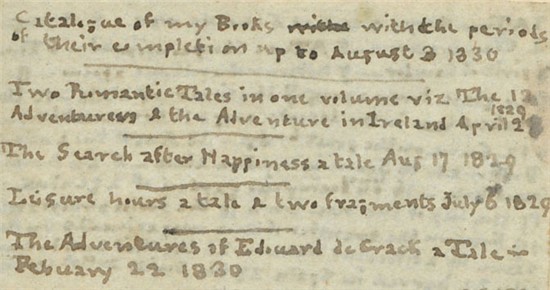 Catalogue of my Books with the periods
of their completion up to August 3 1830
Two Romantic Tales in one volume viz The 12
Adventurers & the Adventure in Ireland April 28 1829
The Search after Happiness a tale Aug 17 1829
Leisure hours a tale & two fragments July 6 1829
The Adventures of Edouard de Crack a Tale
Febuary 22 1830